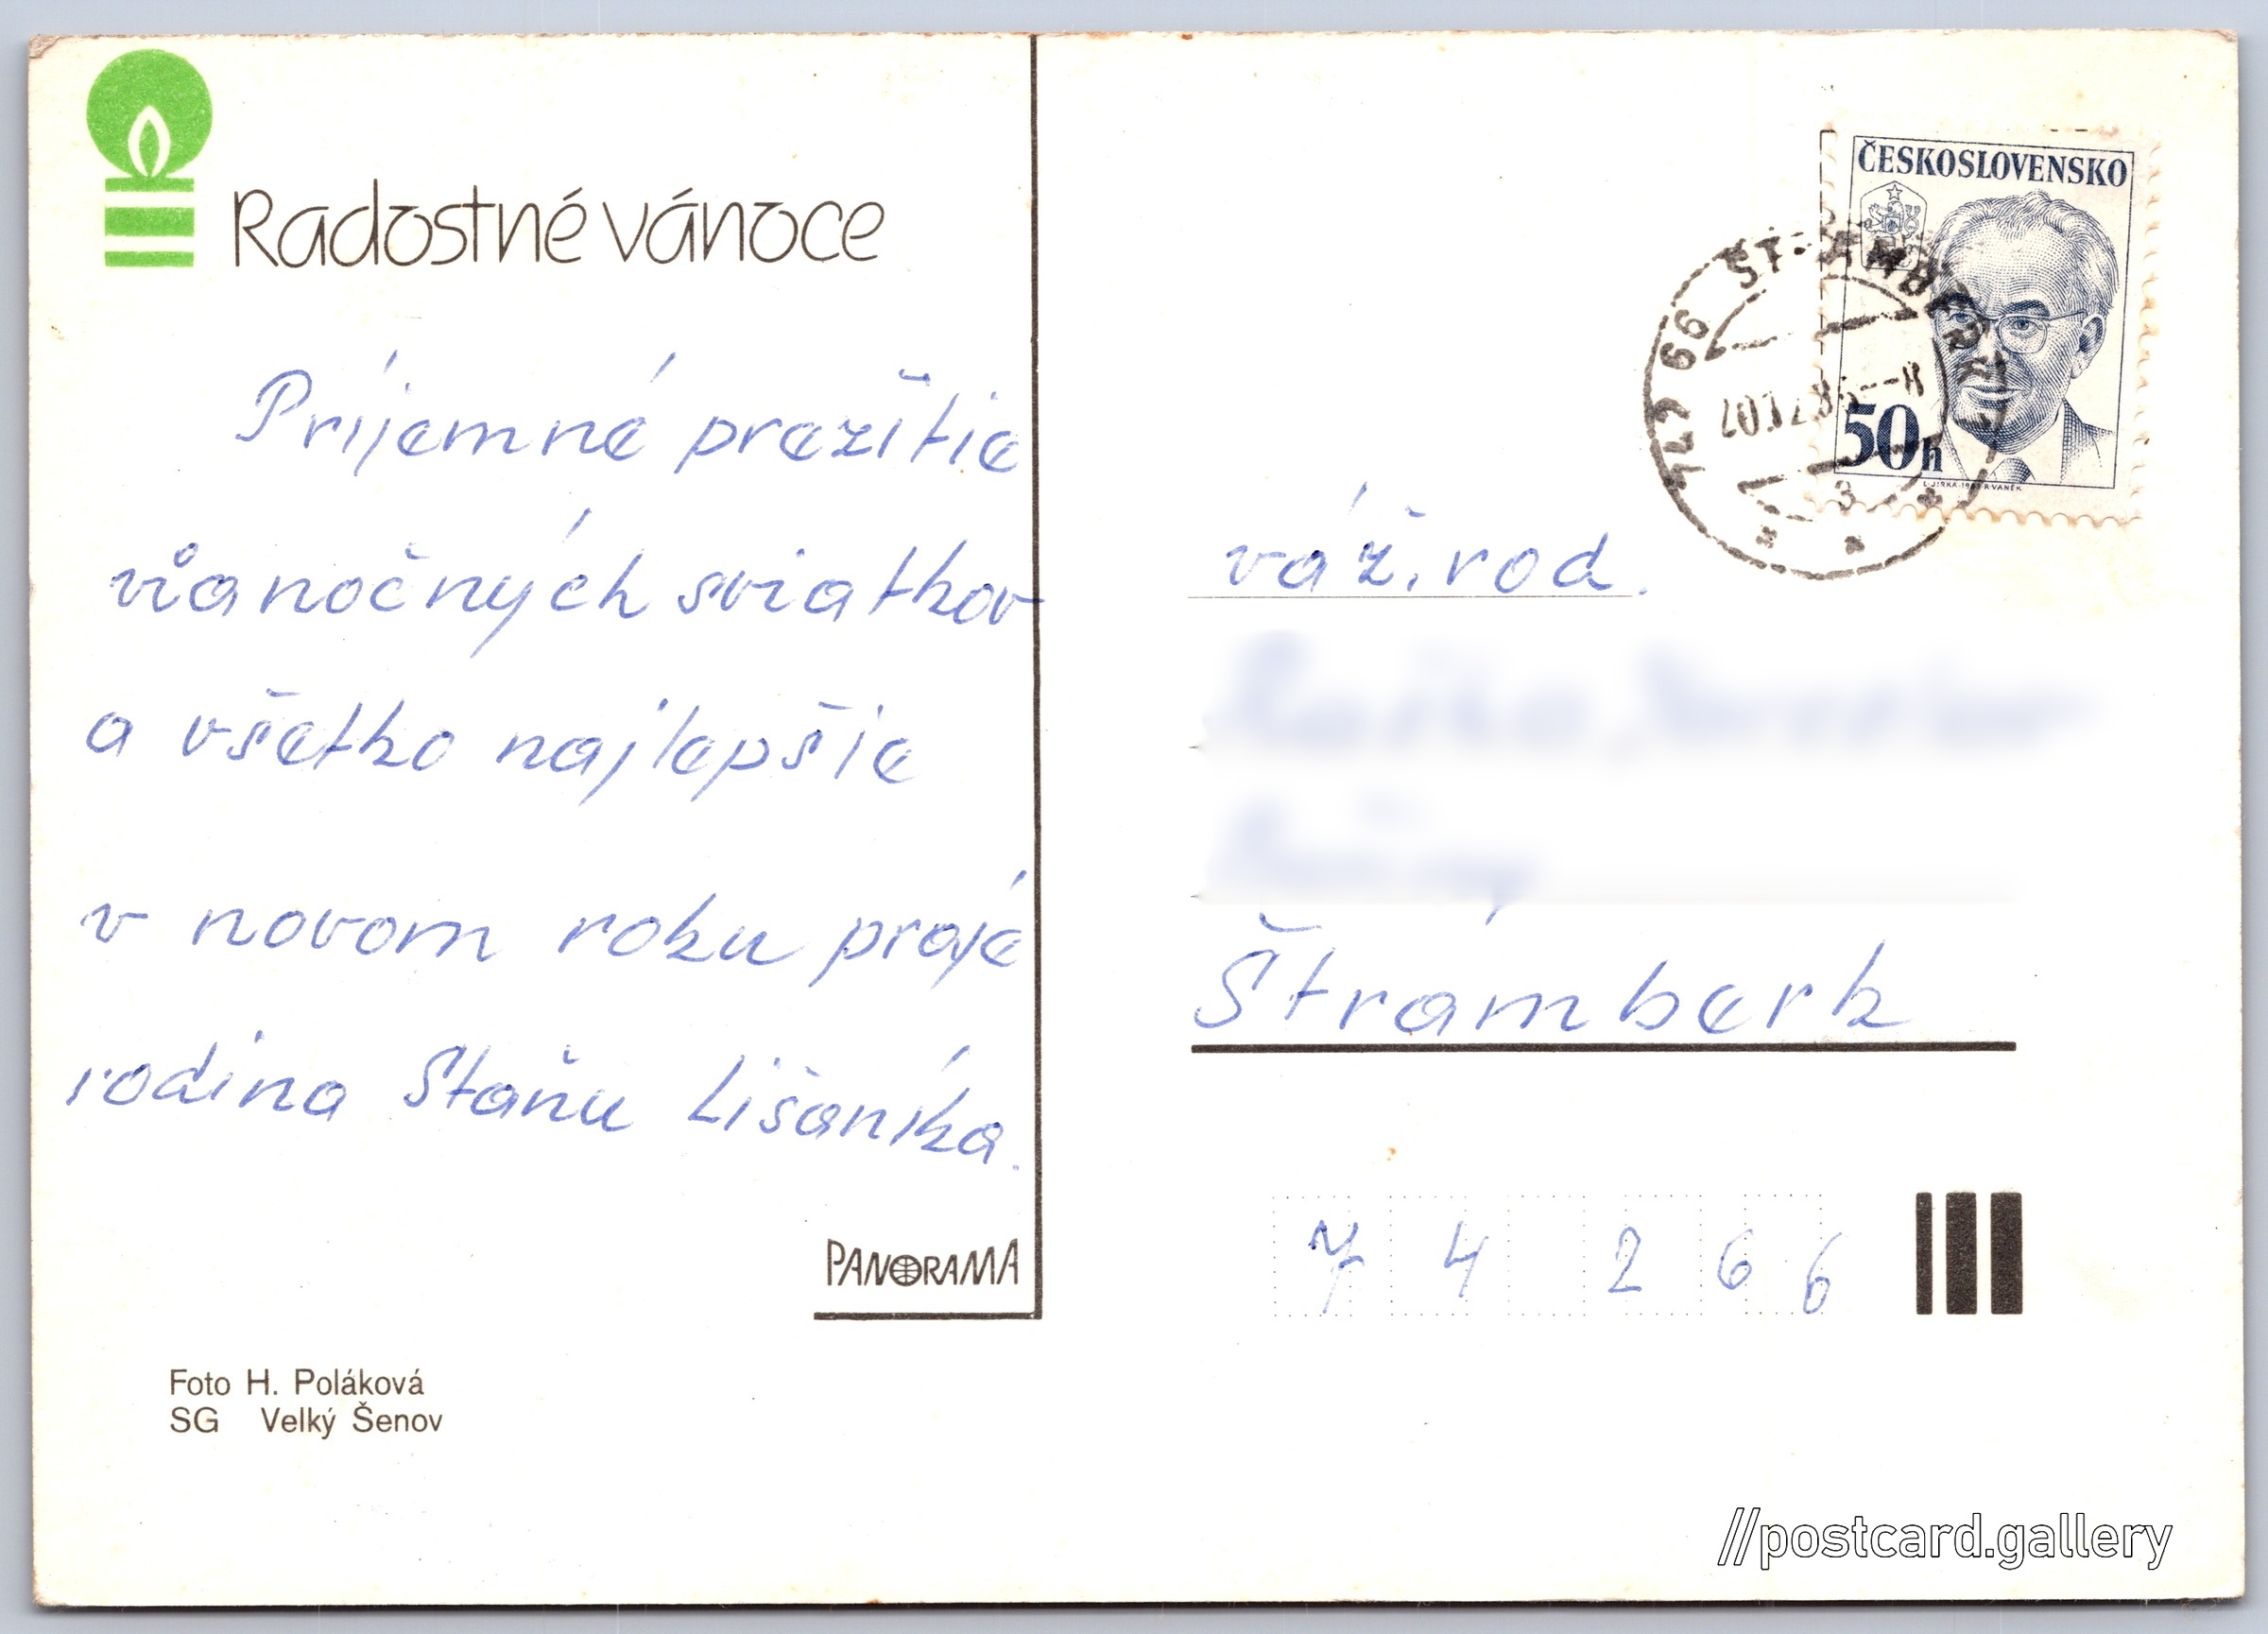 Radostné vánoce
Príjemné prežitie
vianočných sviatkov
a všetko najlepšie
v novom roku praje
rodina Staňu Lišaníka.
PANORAMA
Foto H. Poláková
SG Velký Šenov
ČESKOSLOVENSKO
50h
742 66 ŠTRAMBERK 1
váž. rod.
Štramberk
7 4 2 6 6
//postcard.gallery